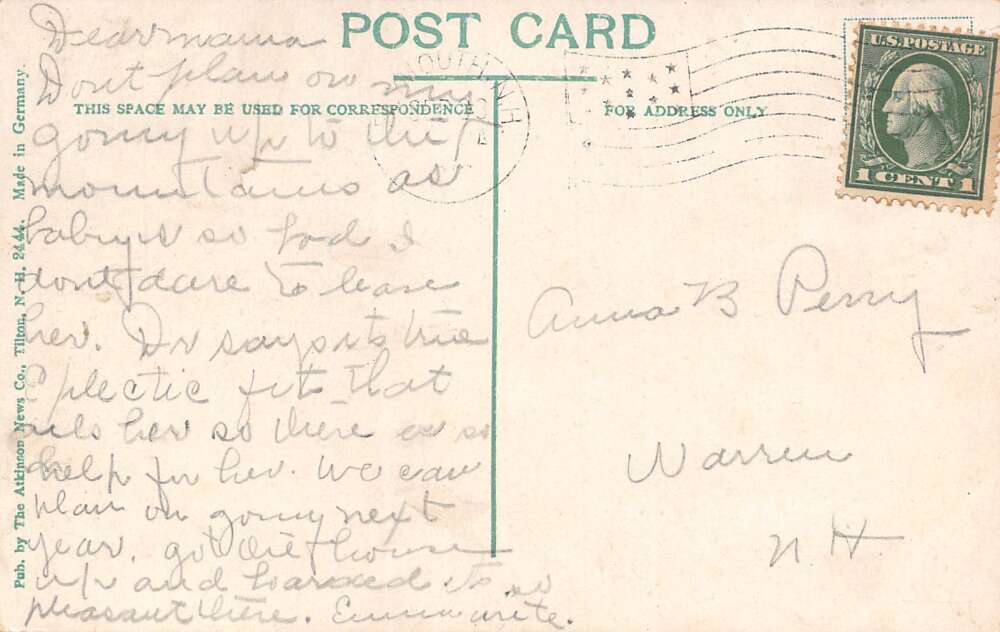 POST CARD
THIS SPACE MAY BE USED FOR CORRESPONDENCE
FOR ADDRESS ONLY
U.S. POSTAGE
1 CENT 1
Pub. by The Atkinson News Co., Tilton, N. H. 2444. Made in Germany.
Dear mama
Dont plan on my
going up to the
mountains as
baby is so bad I
dont dare to leave
her. Dr says its true
Eplectic fits that
ails her so there is no
help for her. We can
plan on going next
year. got the house
up and boarded its so
pleasant there. Emma write.
Anna B Perry
Warren
N H.